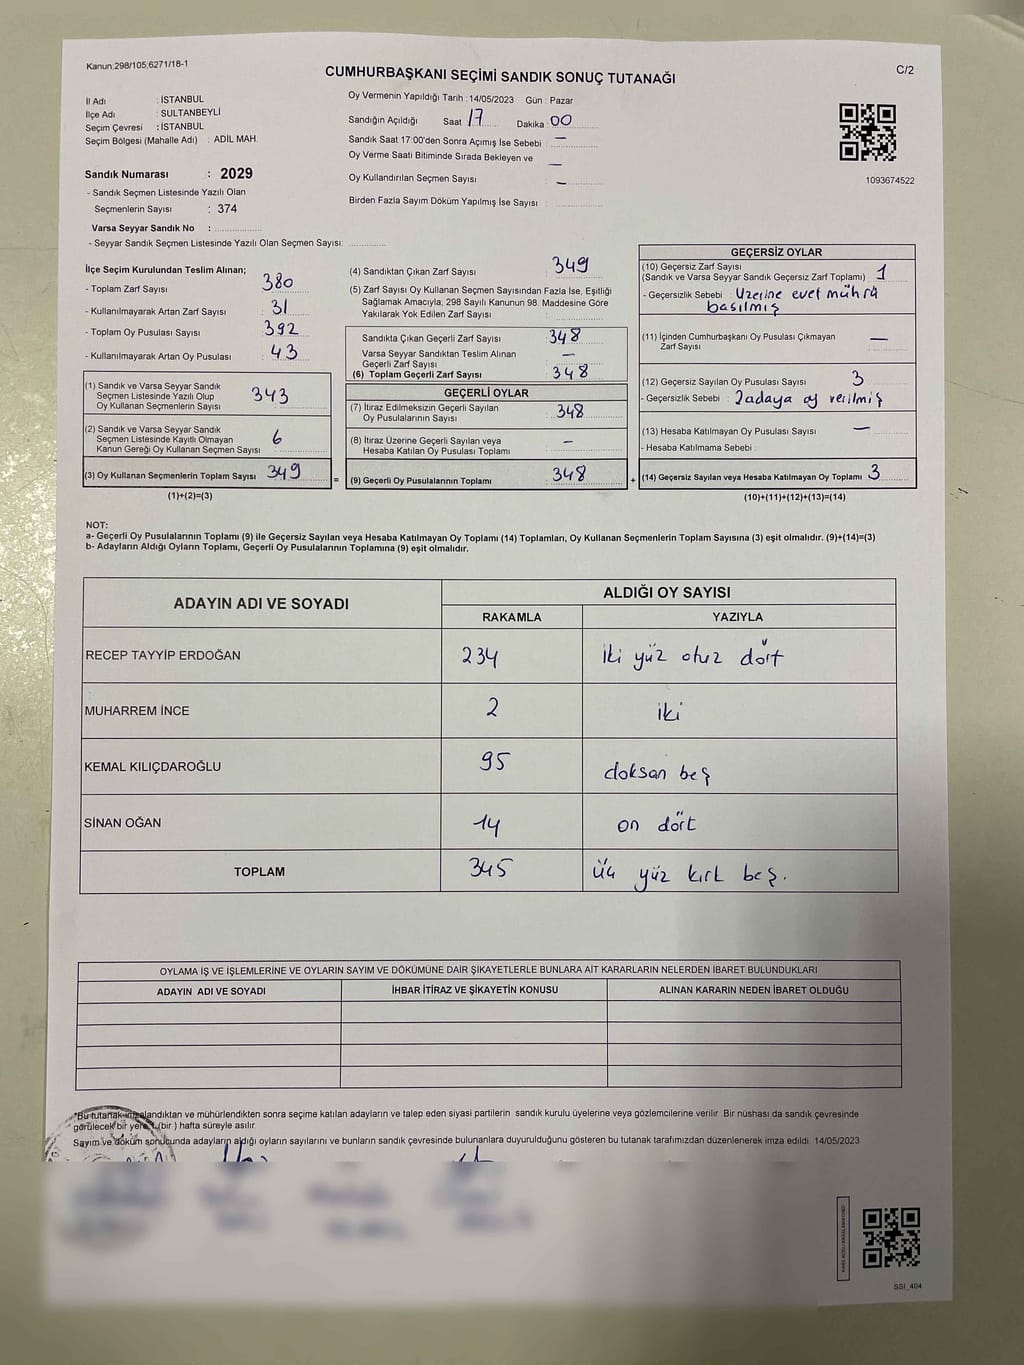 Kanun;298/105;6271/18-1
CUMHURBAŞKANI SEÇİMİ SANDIK SONUÇ TUTANAĞI
C/2
İl Adı : İSTANBUL
İlçe Adı : SULTANBEYLİ
Seçim Çevresi : İSTANBUL
Seçim Bölgesi (Mahalle Adı) : ADİL MAH.
Sandık Numarası : 2029
- Sandık Seçmen Listesinde Yazılı Olan
Seçmenlerin Sayısı : 374
Varsa Seyyar Sandık No :
- Seyyar Sandık Seçmen Listesinde Yazılı Olan Seçmen Sayısı:
Oy Vermenin Yapıldığı Tarih : 14/05/2023 Gün : Pazar
Sandığın Açıldığı Saat 17 Dakika 00
Sandık Saat 17:00'den Sonra Açımış İse Sebebi : —
Oy Verme Saati Bitiminde Sırada Bekleyen ve —
Oy Kullandırılan Seçmen Sayısı : —
Birden Fazla Sayım Döküm Yapılmış İse Sayısı :
1093674522
İlçe Seçim Kurulundan Teslim Alınan;
- Toplam Zarf Sayısı : 380
- Kullanılmayarak Artan Zarf Sayısı : 31
- Toplam Oy Pusulası Sayısı : 392
- Kullanılmayarak Artan Oy Pusulası : 43
(1) Sandık ve Varsa Seyyar Sandık
Seçmen Listesinde Yazılı Olup
Oy Kullanan Seçmenlerin Sayısı : 343
(2) Sandık ve Varsa Seyyar Sandık
Seçmen Listesinde Kayıtlı Olmayan
Kanun Gereği Oy Kullanan Seçmen Sayısı : 6
(3) Oy Kullanan Seçmenlerin Toplam Sayısı : 349
(1)+(2)=(3)
(4) Sandıktan Çıkan Zarf Sayısı : 349
(5) Zarf Sayısı Oy Kullanan Seçmen Sayısından Fazla İse, Eşitliği
Sağlamak Amacıyla; 298 Sayılı Kanunun 98. Maddesine Göre
Yakılarak Yok Edilen Zarf Sayısı :
Sandıkta Çıkan Geçerli Zarf Sayısı : 348
Varsa Seyyar Sandıktan Teslim Alınan
Geçerli Zarf Sayısı : —
(6) Toplam Geçerli Zarf Sayısı : 348
GEÇERLİ OYLAR
(7) İtiraz Edilmeksizin Geçerli Sayılan
Oy Pusulalarının Sayısı : 348
(8) İtiraz Üzerine Geçerli Sayılan veya
Hesaba Katılan Oy Pusulası Toplamı : —
= (9) Geçerli Oy Pusulalarının Toplamı : 348
GEÇERSİZ OYLAR
(10) Geçersiz Zarf Sayısı
(Sandık ve Varsa Seyyar Sandık Geçersiz Zarf Toplamı) : 1
- Geçersizlik Sebebi : Üzerine evet mührü
basılmış
(11) İçinden Cumhurbaşkanı Oy Pusulası Çıkmayan
Zarf Sayısı : —
(12) Geçersiz Sayılan Oy Pusulası Sayısı : 3
- Geçersizlik Sebebi : 2adaya oy verilmiş
(13) Hesaba Katılmayan Oy Pusulası Sayısı : —
- Hesaba Katılmama Sebebi :
+ (14) Geçersiz Sayılan veya Hesaba Katılmayan Oy Toplamı : 3
(10)+(11)+(12)+(13)=(14)
NOT:
a- Geçerli Oy Pusulalarının Toplamı (9) ile Geçersiz Sayılan veya Hesaba Katılmayan Oy Toplamı (14) Toplamları, Oy Kullanan Seçmenlerin Toplam Sayısına (3) eşit olmalıdır. (9)+(14)=(3)
b- Adayların Aldığı Oyların Toplamı, Geçerli Oy Pusulalarının Toplamına (9) eşit olmalıdır.
ADAYIN ADI VE SOYADI ALDIĞI OY SAYISI
RAKAMLA YAZIYLA
RECEP TAYYİP ERDOĞAN 234 iki yüz otuz dört
MUHARREM İNCE 2 iki
KEMAL KILIÇDAROĞLU 95 doksan beş
SİNAN OĞAN 14 on dört
TOPLAM 345 üç yüz kırk beş.
OYLAMA İŞ VE İŞLEMLERİNE VE OYLARIN SAYIM VE DÖKÜMÜNE DAİR ŞİKAYETLERLE BUNLARA AİT KARARLARIN NELERDEN İBARET BULUNDUKLARI
ADAYIN ADI VE SOYADI İHBAR İTİRAZ VE ŞİKAYETİN KONUSU ALINAN KARARIN NEDEN İBARET OLDUĞU
*Bu tutanak imzalandıktan ve mühürlendikten sonra seçime katılan adayların ve talep eden siyasi partilerin sandık kurulu üyelerine veya gözlemcilerine verilir. Bir nüshası da sandık çevresinde
görülecek bir yere 1 (bir) hafta süreyle asılır.
Sayım ve döküm sonucunda adayların aldığı oyların sayılarını ve bunların sandık çevresinde bulunanlara duyurulduğunu gösteren bu tutanak tarafımızdan düzenlenerek imza edildi. 14/05/2023
SSI_404